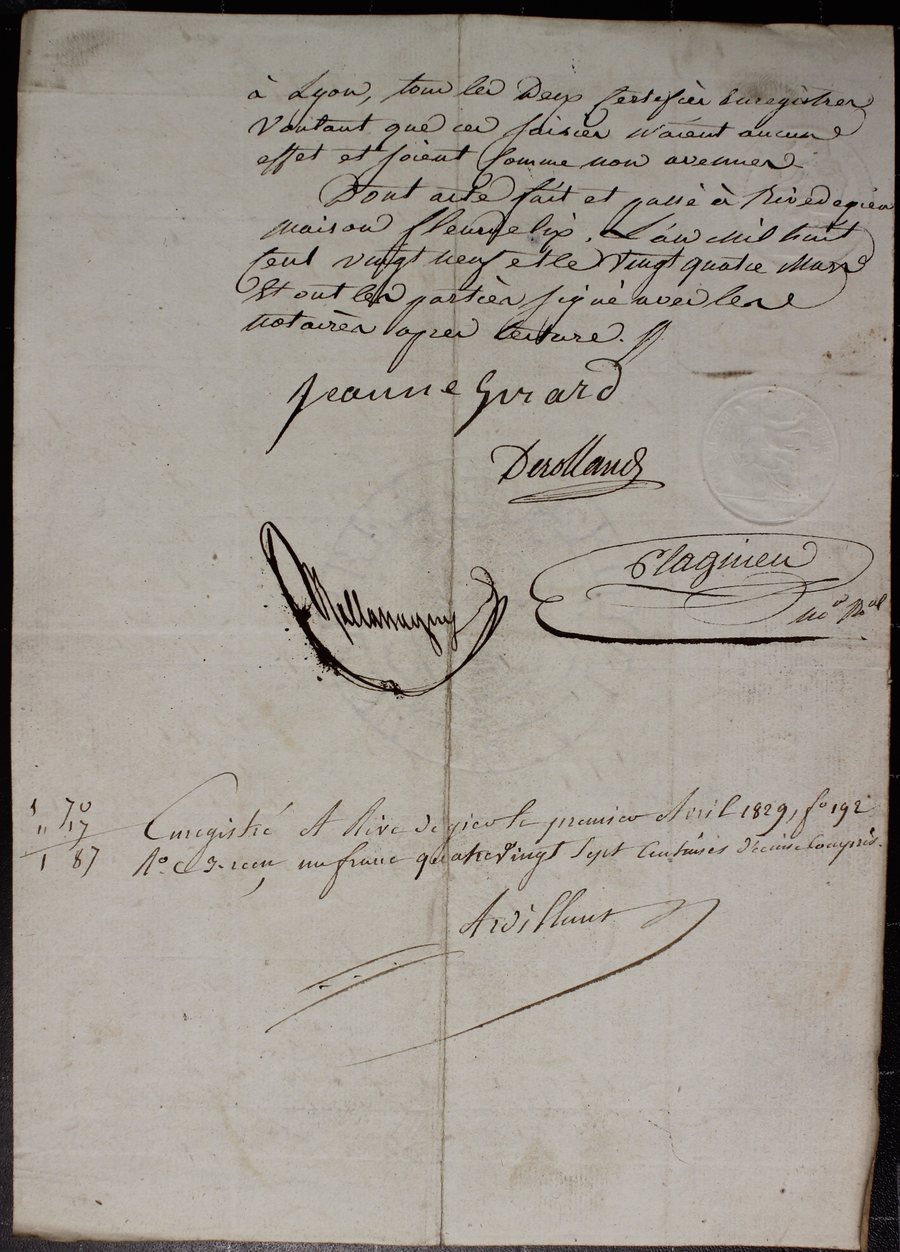 à Lyon, tous les deux Certifiés Enregistrés
Voulant que ces saisies n'aient aucune
effet et soient Comme non avenues
Dont acte fait et passé à Rivedegier
maison fleurdelix, L'an Mil huit
Cent vingt neuf et le Vingt quatre Mars
Et ont les parties signé avec les
notaires après lecture.
Jeanne Girard
Derolland
Plagnieu
no.re R.al
1 70
" 17
1 87
Enregistré A Rive de gier le premier Avril 1829, f.o 192
R.o C. 3. reçu un franc quatre Vingt Sept Centimes décime Compris.